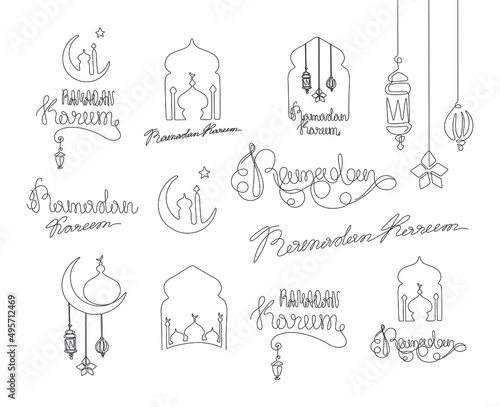 RAMADAN
Kareem
Ramadan Kareem
Ramadan
Kareem
Ramadan
Ramadan
Kareem
Ramadan Kareem
RAMADAN
Kareem
Ramadan
Adobe Stock | #495712469